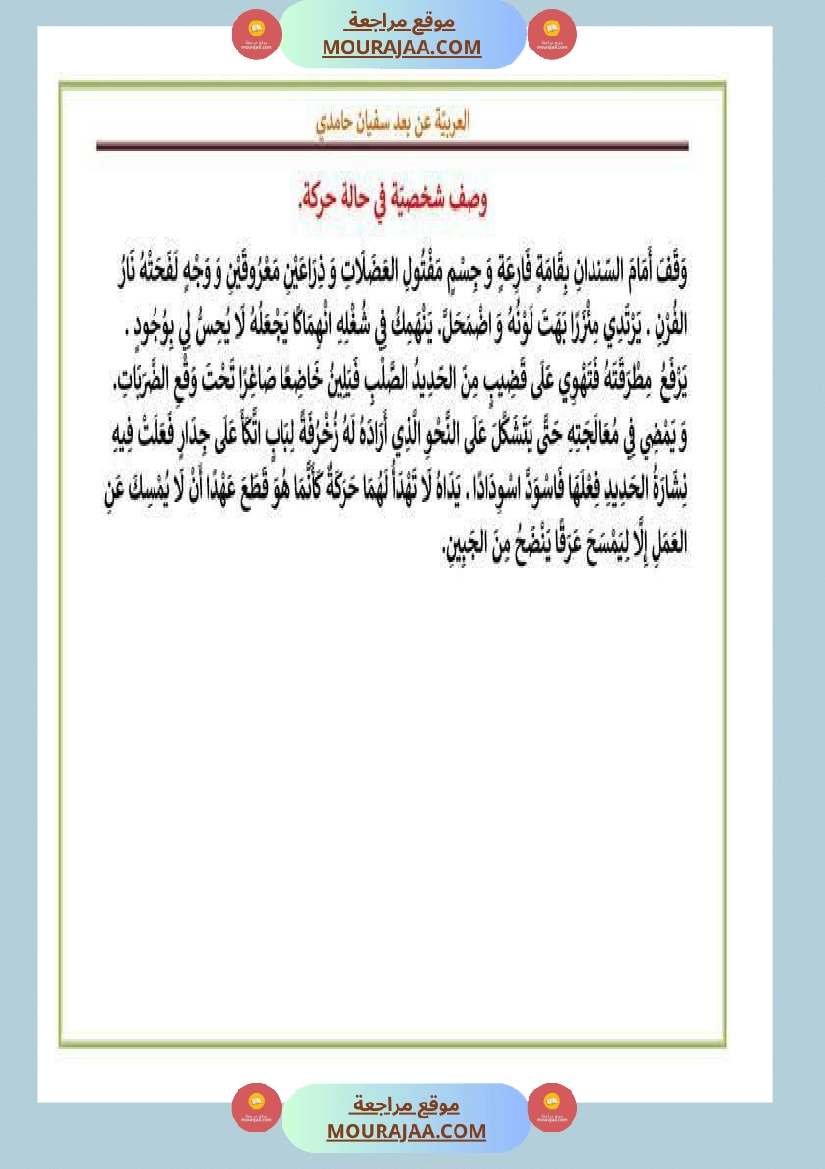 موقع مراجعة
MOURAJAA.COM
العربيّة عن بعد سفيان حامدي
وصف شخصيّة في حالة حركة.
وَقَفَ أَمَامَ السّندانِ بِقَامَةٍ فَارِعَةٍ وَ جِسْمٍ مَفْتُولِ العَضَلَاتِ وَ ذِرَاعَيْنِ مَعْرُوقَيْنِ وَ وَجْهٍ لَفَحَتْهُ نَارُ
الفُرْنِ . يَرْتَدِي مِئْزَرًا بَهَتَ لَوْنُهُ وَ اضْمَحَلَّ. يَنْهَمِكُ فِي شُغْلِهِ انْهِمَاكًا يَجْعَلُهُ لَا يُحِسُّ لِي بِوُجُودٍ .
يَرْفَعُ مِطْرَقَتَهُ فَتَهْوِي عَلَى قَضِيبٍ مِنَ الحَدِيدُ الصَّلْبِ فَيَلِينُ خَاضِعًا صَاغِرًا تَحْتَ وَقْعِ الضَّرَبَاتِ.
وَ يَمْضِي فِي مُعَالَجَتِهِ حَتَّى يَتَشَكَّلَ عَلَى النَّحْوِ الَّذِي أَرَادَهُ لَهُ زُخْرُفَةً لِبَابٍ اتَّكَأَ عَلَى جِدَارٍ فَعَلَتْ فِيهِ
نِشَارَةُ الحَدِيدِ فِعْلَهَا فَاسْوَدَّ اسْوِدَادًا . يَدَاهُ لَا تَهْدَأُ لَهُمَا حَرَكَةٌ كَأَنَّمَا هُوَ قَطَعَ عَهْدًا أَنْ لَا يُمْسِكَ عَنِ
العَمَلِ إِلَّا لِيَمْسَحَ عَرَقًا يَنْضَحُ مِنَ الجَبِينِ.
موقع مراجعة
MOURAJAA.COM